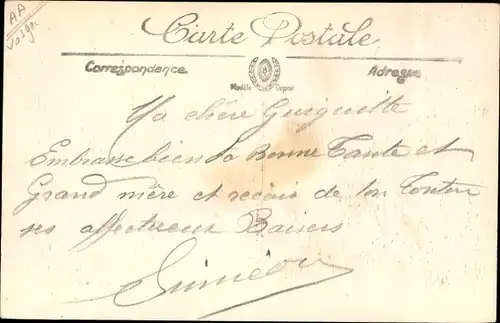 AA
Vosges
Carte Postale
Correspondance
Adresse
Modèle Déposé
Ma chère Guiguitte
Embrasse bien la Bonne Tante et
Grand mère et reçois de ton Tonton
ses affectueux Baisers
Siméon